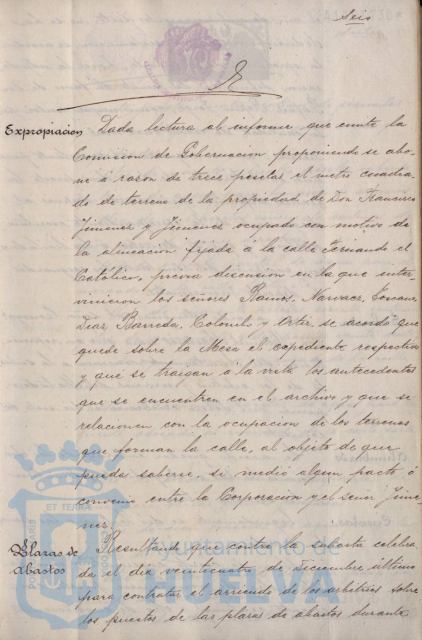 Seis
Expropiacion
Dada lectura al informe que emite la
Comision de Gobernacion proponiendo se abo-
ne á razon de tres pesetas el metro cuadra-
do de terreno de la propiedad de Don Francisco
Jimenez y Jimenez ocupado con motivo de
la alineacion fijada á la calle Fernando el
Católico, previa discusion en la que inter-
vinieron los señores Ramos, Narvaez, Toscano,
Diaz, Barreda, Colombo y Ortiz, se acordó que
quede sobre la Mesa el expediente respectivo
y que se traigan á la vista los antecedentes
que se encuentren en el archivo y que se
relacionen con la ocupacion de los terrenos
que forman la calle, al objeto de que
pueda saberse, si medió algun pacto ó
convenio entre la Corporacion y el señor Jime-
nez.
Plazas de
Abastos
Resultando que contra la subasta celebra-
da el dia veinticuatro de Diciembre último
para contratar el arriendo de los arbitrios sobre
los puestos de las plazas de abastos durante
ET TERRÆ
Ayuntamiento de
HUELVA